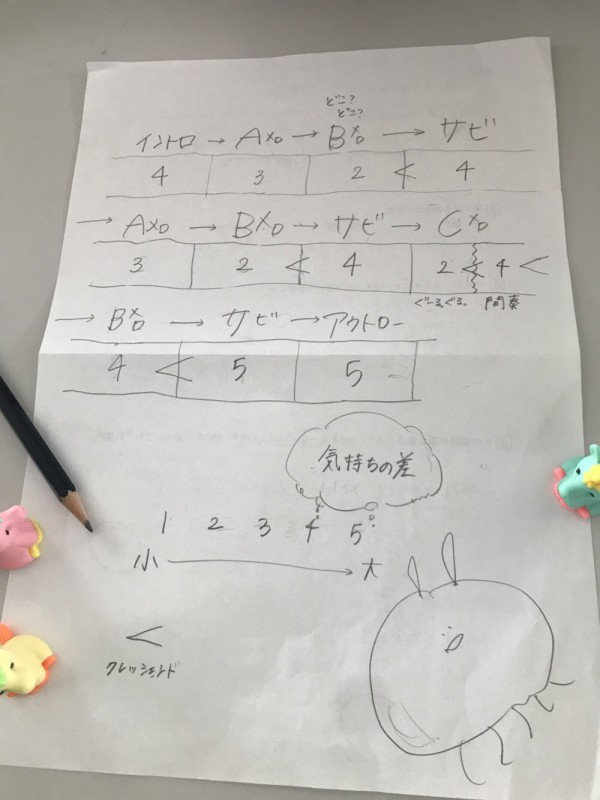 どこ?
どこ?
イントロ → Aメロ → Bメロ → サビ
4 3 2 < 4
→ Aメロ → Bメロ → サビ → Cメロ
3 2 < 4 2 < 4 <
ぐーるぐる。 間奏
→ Bメロ → サビ → アウトロー
4 < 5 5
気持ちの差
1 2 3 4 5
小 → 大
<
クレッシェンド